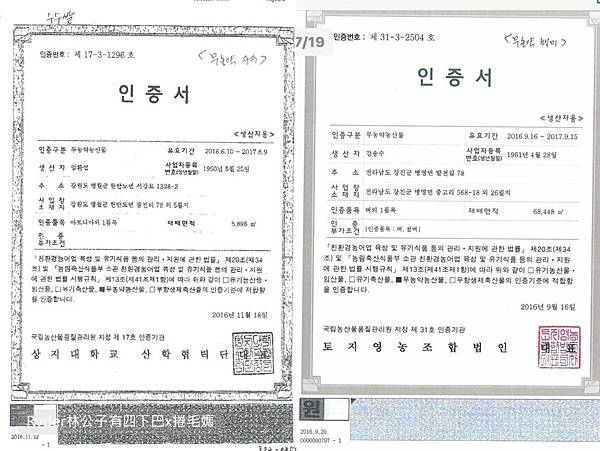 수수쌀
인증번호 : 제 17-3-1296 호
<무농약 수수>
인 증 서
<생산자용>
인증구분 무농약농산물 유효기간 2016.6.10 ~ 2017.6.9
생 산 자 사업자등록번호(생년월일) 1950년 5월 25일
주 소 강원도 영월군 한반도면 서강로 1328-2
사 업 장 소 재 지 강원도 영월군 한반도면 78 외 5필지
인증품목 1품목 재배면적 5,898 ㎡
인 증 부가조건
「친환경농어업 육성 및 유기식품 등의 관리·지원에 관한 법률」 제20조(제34조) 및 「농림축산식품부 소관 친환경농어업 육성 및 유기식품 등의 관리·지원에 관한 법률 시행규칙」 제13조(제41조제1항)에 따라 위와 같이 □유기농산물·임산물, □유기축산물, ■무농약농산물, □무항생제축산물의 인증기준에 적합함을 인증합니다.
2016년 11월 18일
국립농산물품질관리원 지정 제 17호 인증기관
상 지 대 학 교 산 학 협 력 단 대 표
Ryder林公子有四下巴x捲毛嬌
2016.11.22
- 1
7/19
인증번호 : 제 31-3-2504 호
<무농약 백미>
인 증 서
<생산자용>
인증구분 무농약농산물 유효기간 2016.9.16 ~ 2017.9.15
생 산 자 강승수 사업자등록번호(생년월일) 1961년 4월 28일
주 소 전라남도 강진군 병영면 발천길 78
사 업 장 소 재 지 전라남도 강진군 병영면 중고리 568-18 외 26필지
인증품목 벼외 1품목 재배면적 68,448 ㎡
인 증 부가조건 [인증품목 : 벼, 찰벼]
「친환경농어업 육성 및 유기식품 등의 관리·지원에 관한 법률」 제20조(제34조) 및 「농림축산식품부 소관 친환경농어업 육성 및 유기식품 등의 관리·지원에 관한 법률 시행규칙」 제13조(제41조제1항)에 따라 위와 같이 □유기농산물·임산물, □유기축산물, ■무농약농산물, □무항생제축산물의 인증기준에 적합함을 인증합니다.
2016년 9월 16일
국립농산물품질관리원 지정 제 31호 인증기관
토 지 영 농 조 합 법 인 대 표
원
2016.9.20
0000000797 - 1